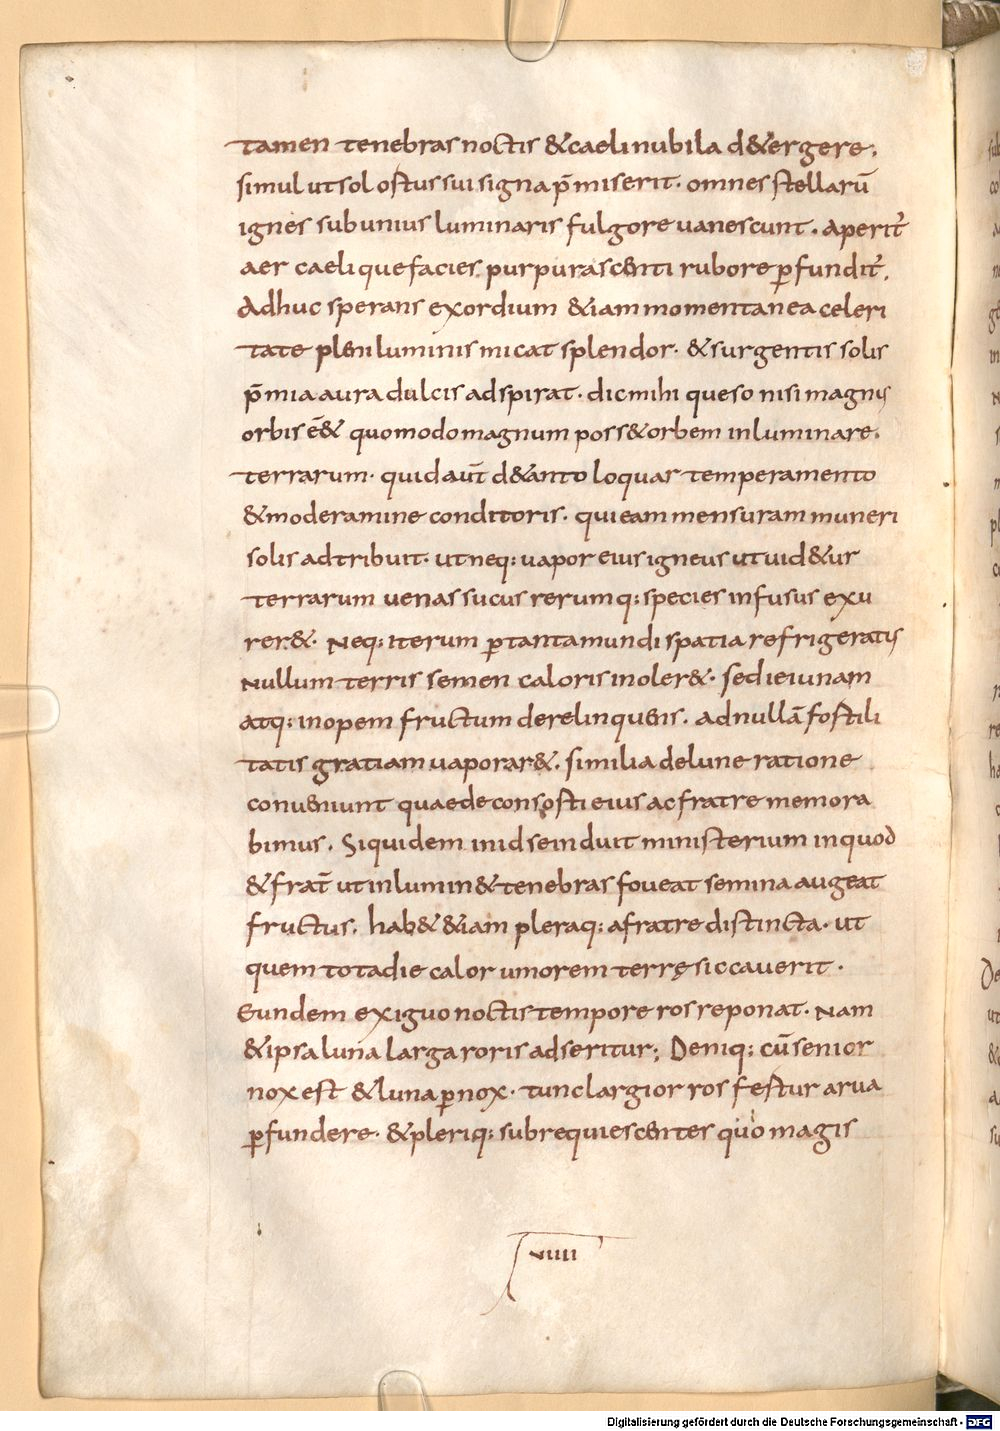 tamen tenebras noctis &caeli nubila d&ergere;
simul ut sol ortus sui signa p̄miserit· omnes stellarū
ignes sub unius luminaris fulgore uanescunt. Aperit᷎
aer caelique facies purpurascenti rubore ꝑfundit᷎.
Adhuc sperans exordium &iam momentanea celeri
tate pleni luminis micat splendor· &surgentis solis
p̄mia aura dulcis adspirat· dic mihi queso nisi magnus
orbis ē& quomodo magnum poss& orbem inluminare.
terrarum· quid aut̄ d&anto loquar temperamento
&moderamine conditoris· qui eam mensuram muneri
solis adtribuit· ut neq; uapor eius igneus ut uid&ur
terrarum uenas sucus rerumq; species infusus exu
rer&. Neq; iterum ꝑ tanta mundi spatia refrigeratus
Nullum terris semen caloris inoler&· sed ieiunam
atq; inopem fructum derelinquens. ad nullā fertili
tatis gratiam uaporar&. similia de lune ratione
conueniunt quae de consorti eius ac fratre memora
bimus. Siquidem in id se induit ministerium in quod
&frat̄ ut inlumin& tenebras foueat semina augeat
fructus. hab& &iam pleraq; a fratre distincta· ut
quem tota die calor umorem terrę siccauerit·
Eundem exiguo noctis tempore ros reponat· Nam
&ipsa luna larga roris adseritur; Deniq; cū senior
nox est &luna ꝑnox· tunc largior ros fertur arua
ꝑfundere· &pleriq; sub requiescentes quo magis
VIIII
Digitalisierung gefördert durch die Deutsche Forschungsgemeinschaft - DFG